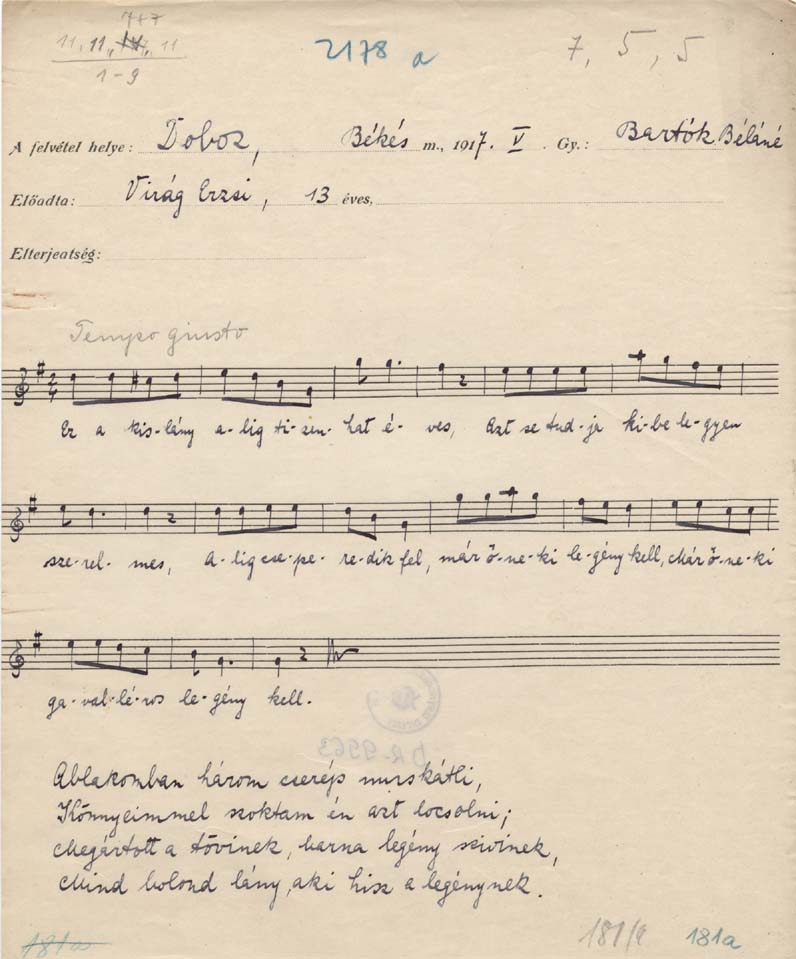 7+7
11, 11, 14, 11
1-9
2178 a
7, 5, 5
A felvétel helye: Doboz, Békés m., 1917. V. Gy.: Bartók Béláné
Előadta: Virág Erzsi, 13 éves,
Elterjeatség:
Tempo giusto
Ez a kis-lány a-lig ti-zen-hat é-ves, Azt se tud-ja ki-be le-gyen
sze-rel-mes, A-lig cse-pe-re-dik fel, már ő-ne-ki le-gény kell, Már ő-ne-ki
ga-val-lé-ros le-gény kell.
DR-9563
Ablakomban három cserép muskátli,
Könnyeimmel szoktam én azt locsolni;
Megártott a tövinek, barna legény szivinek,
Mind bolond lány, aki hisz a legénynek.
181a 181/a 181a